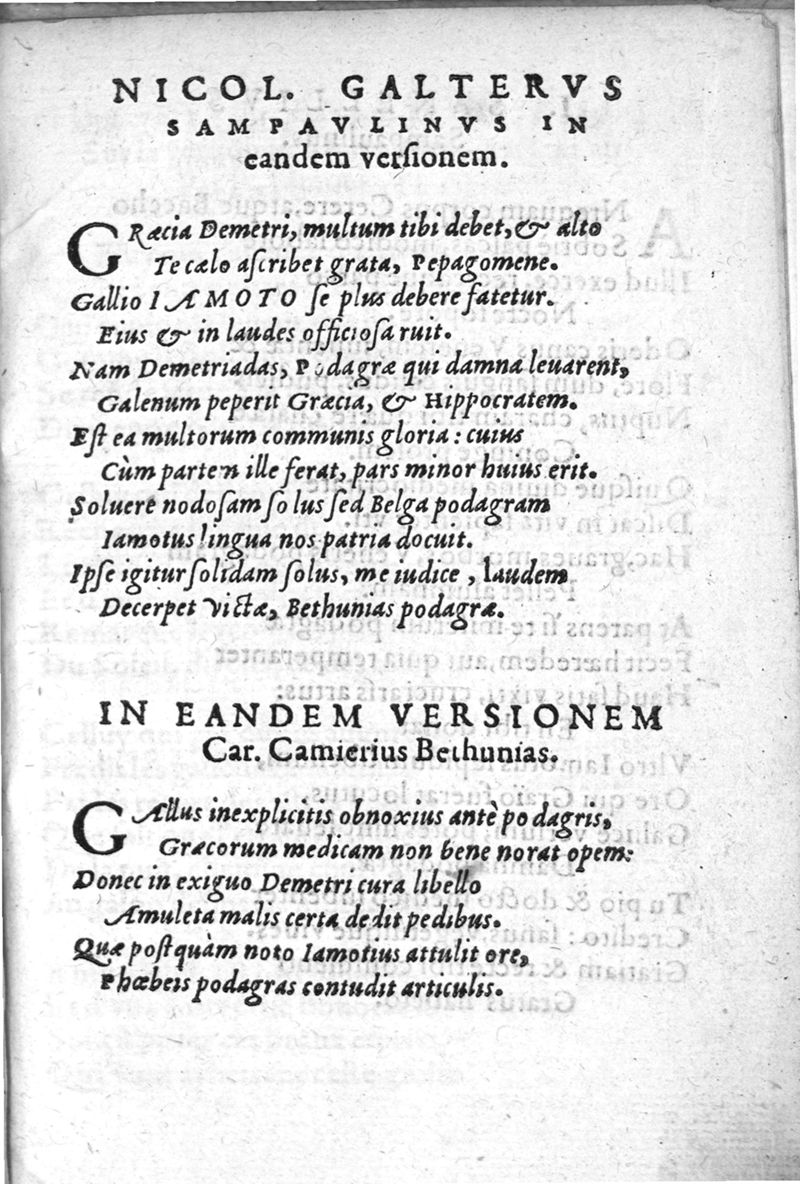 NICOL. GALTERVS
SAMPAVLINVS IN
eandem verſionem.
GRæcia Demetri, multum tibi debet, & alto
Te cælo aſcribet grata, Pepagomene.
Gallio IAMOTO ſe plus debere fatetur.
Eius & in laudes officioſa ruit.
Nam Demetriadas, Podagræ qui damna leuarent,
Galenum peperit Græcia, & Hippocratem.
Eſt ea multorum communis gloria: cuius
Cùm partem ille ferat, pars minor huius erit.
Soluere nodoſam ſolus ſed Belga podagram
Iamotus lingua nos patria docuit.
Ipſe igitur ſolidam ſolus, me iudice, laudem
Decerpet victæ, Bethunias podagræ.
IN EANDEM VERSIONEM
Car. Camierius Bethunias.
GAllus inexplicitis obnoxius antè podagris,
Græcorum medicam non bene norat opem:
Donec in exiguo Demetri cura libello
Amuleta malis certa dedit pedibus.
Quæ poſtquàm noto Iamotius attulit ore,
Phœbeis podagras contudit articulis.